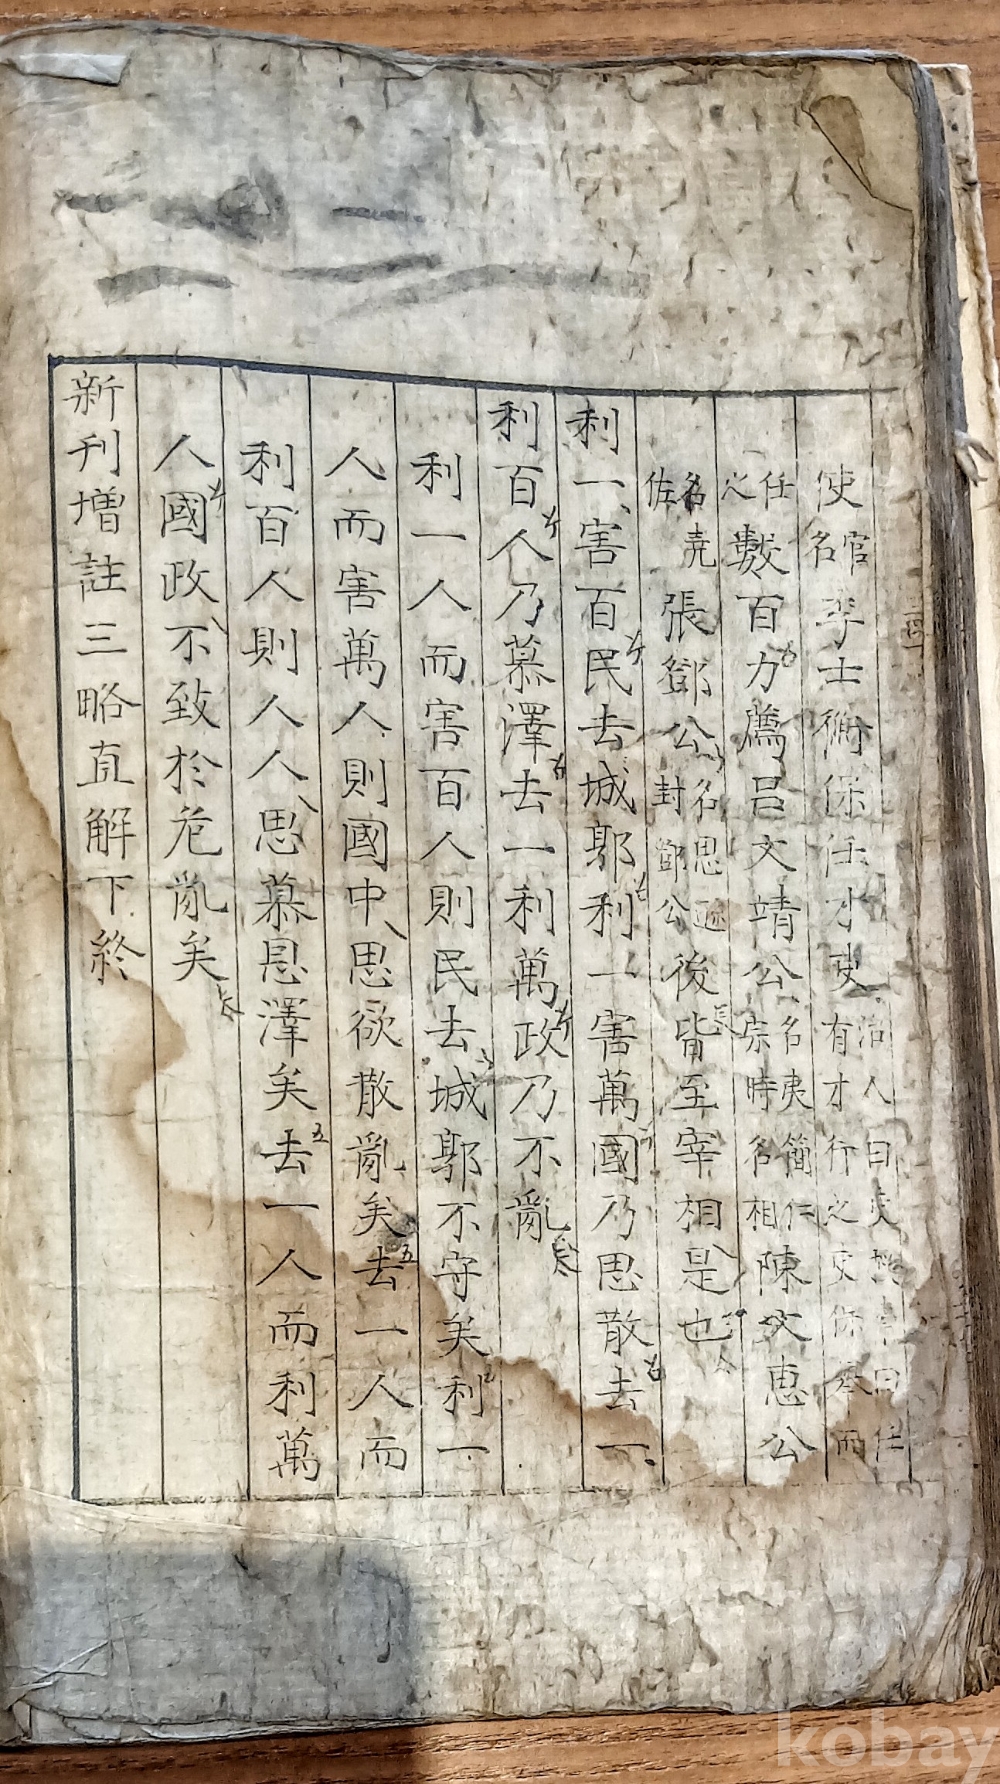 使官名李士衡保任才吏有才行之
任之數百力薦呂文靖公名夷簡仁宗時名相陳文惠公
名堯佐張鄧公名思遜封鄧公後皆至宰相是也
利一害百民去城郭利一害萬國乃思散去一
利百人乃慕澤去一利萬政乃不亂
利一人而害百人則民去城郭不守矣利一
人而害萬人則國中思欲散亂矣去一人而
利百人則人人思慕恩澤矣去一人而利萬
人國政不致於危亂矣
新刊增註三略直解下終
kobay